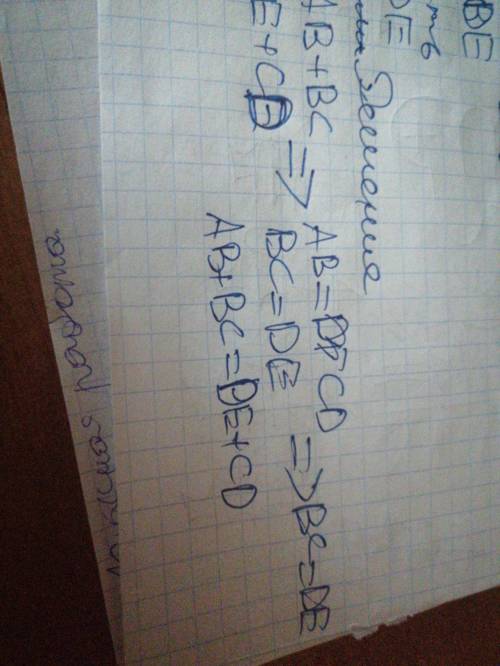 BE
ть
DE
Решения
AB+BC => AB=CD => BC=DE
E+CD BC=DE
AB+BC=DE+CD
работа